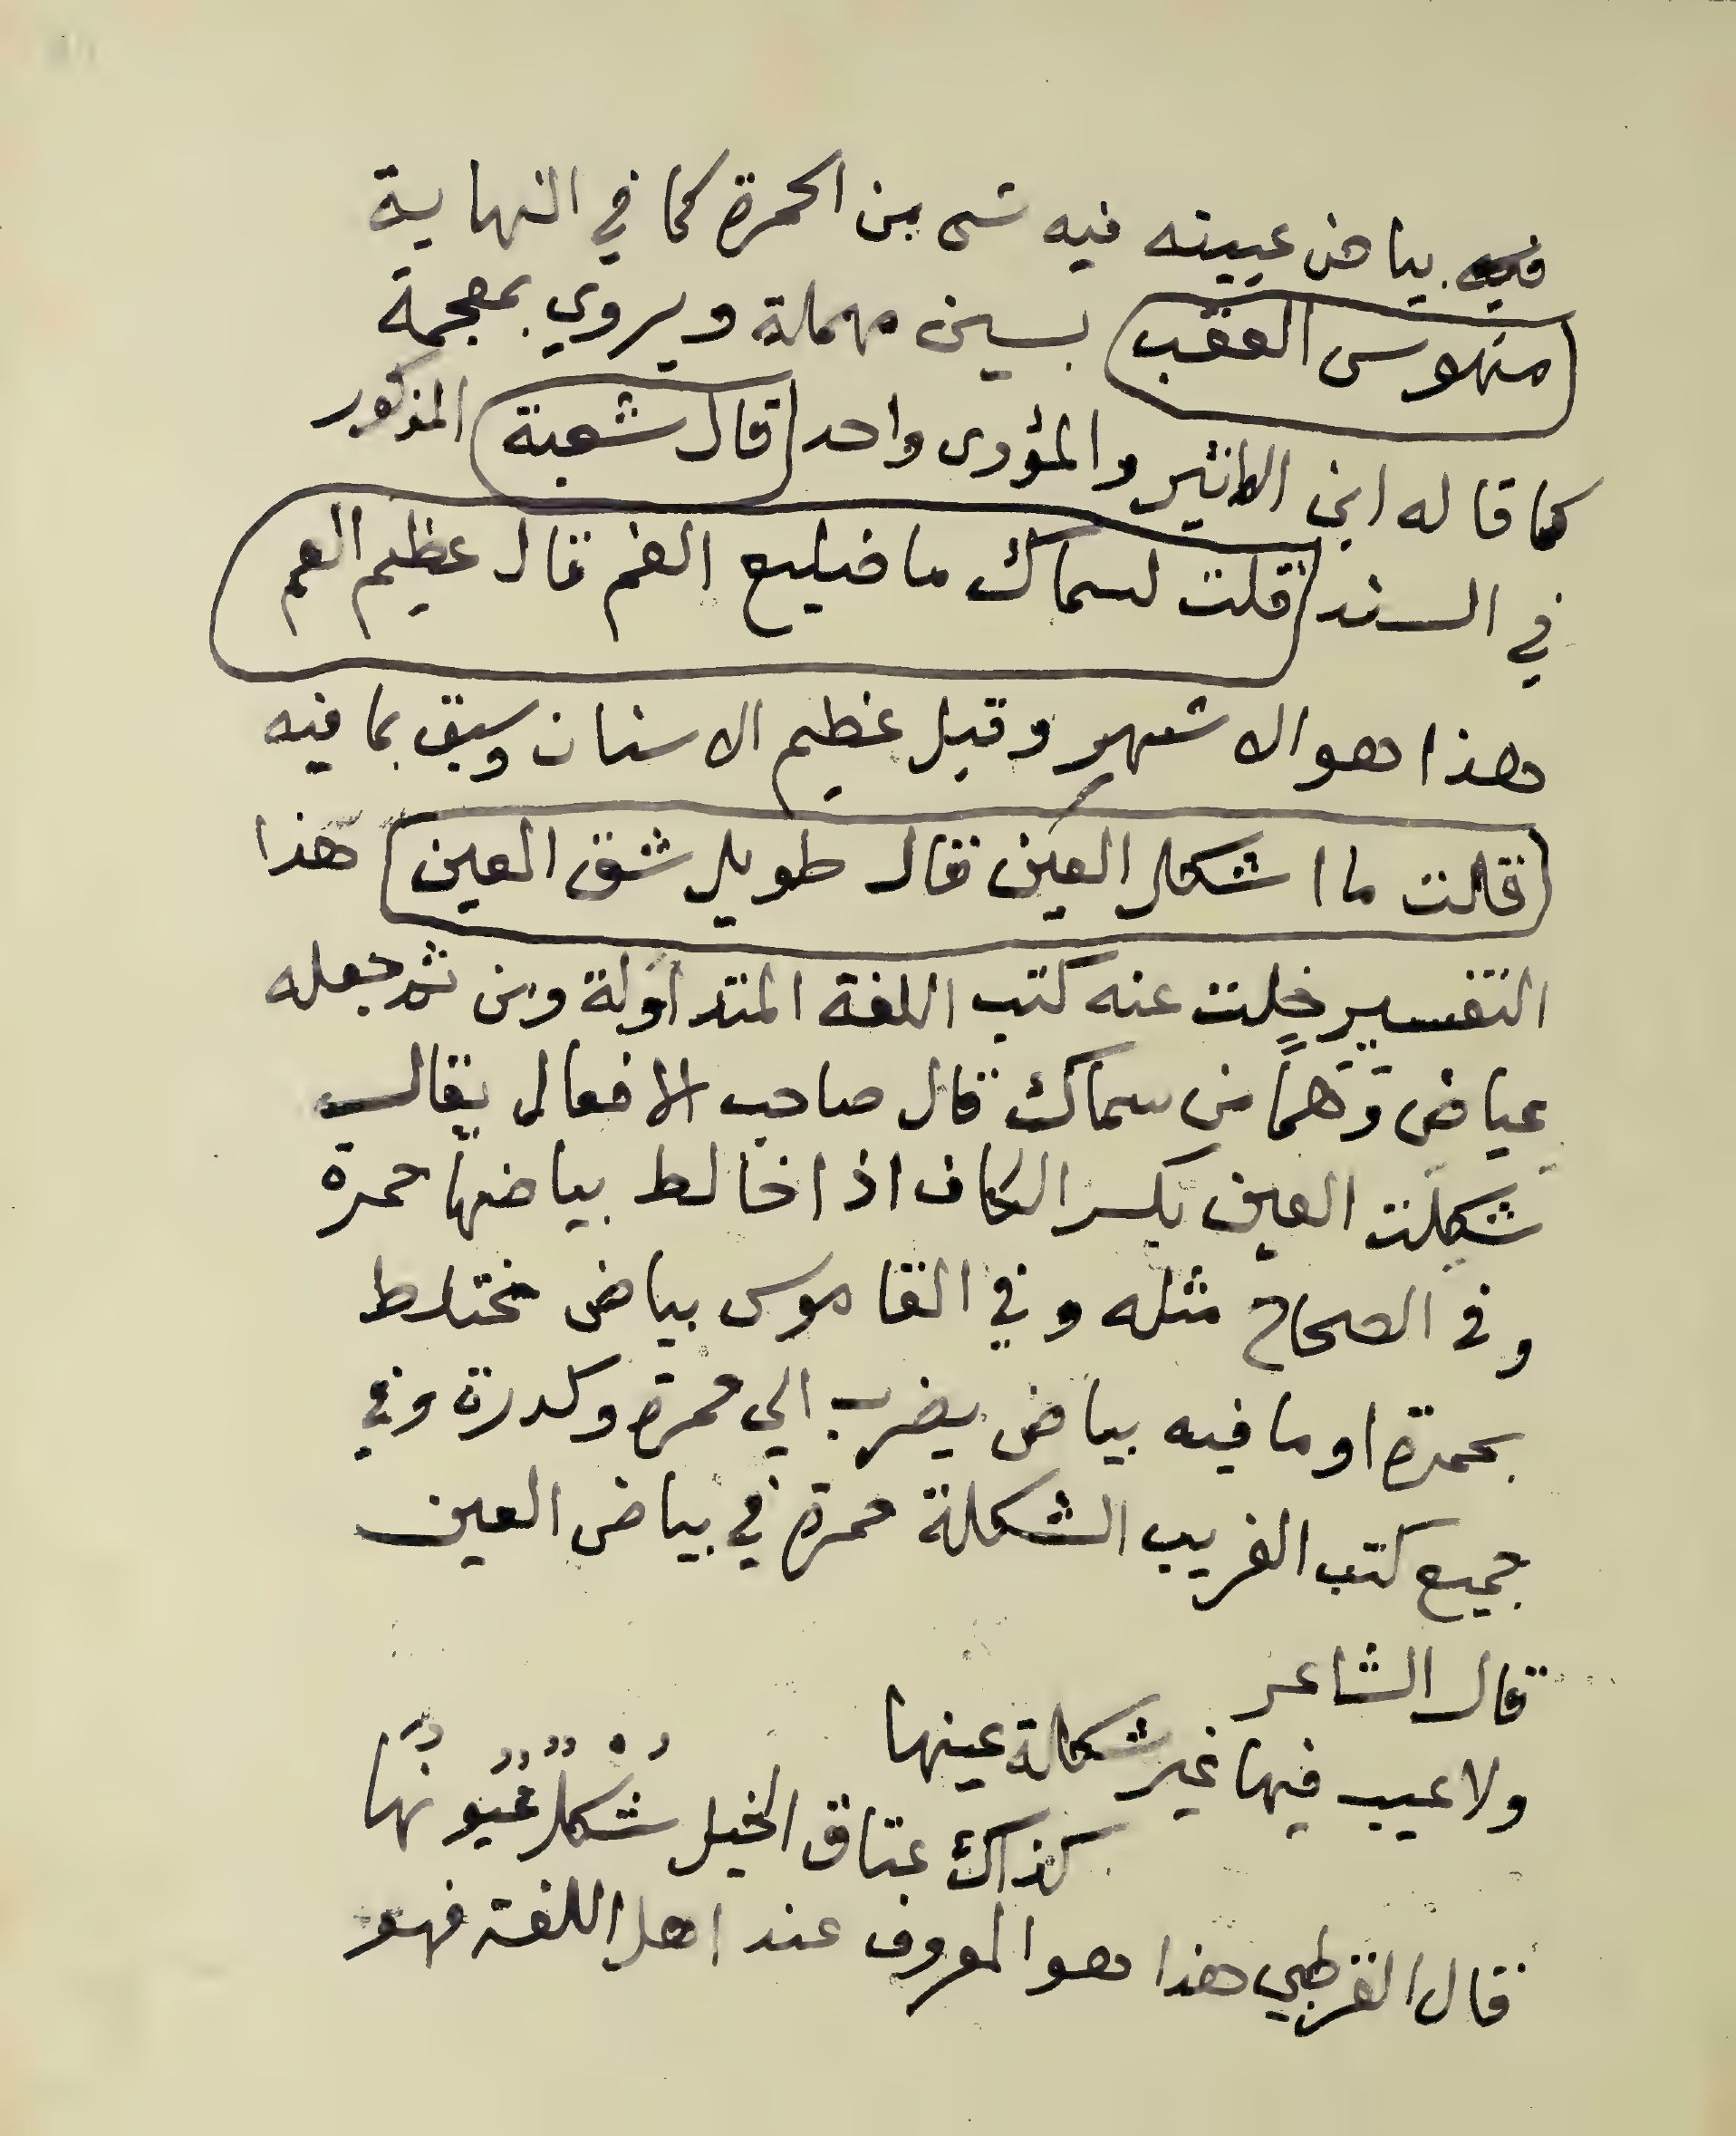 فيه بياض عينيه فيه شى من الحمرة كما في النهاية
منهوس العقب بسين مهملة ويروي بمعجمة
كما قاله ابن الاثير والمؤدى واحد قال شعبة المذكور
في السند قلت لسماك ما ضليع الفم قال عظيم الفم
هذا هو الاشهر وقيل عظيم الاسنان وسبق بما فيه
قلت ما اشكل العين قال طويل شق العين هذا
التفسير خلت عنه كتب اللغة المتداولة ومن ثم جعله
عياض وَهَماً من سماك قال صاحب الافعال يقال
شكِلَت العين بكسر الكاف اذا خالط بياضها حمرة
وفى الصحاح مثله وفي القاموس بياض مختلط
بحمرة او ما فيه بياض يضرب الي حمرة وكدرة وفي
جميع كتب الغريب الشكلة حمرة في بياض العين
قال الشاعر
ولا عيب فيها غير شكلة عينها
كذاك عتاق الخيل شُكْلٌ عُيُونُها
قال القرطبي هذا هو المعروف عند اهل اللغة فهو